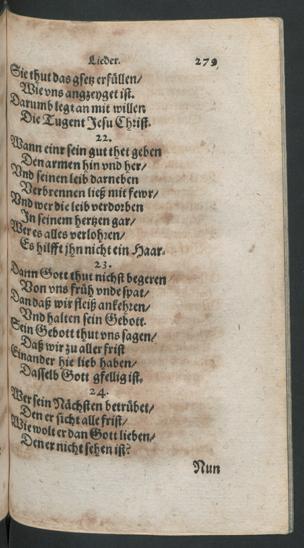 Lieder. 279
Sie thut das gsetz erfüllen/
Wie vns angzeyget ist.
Darumb legt an mit willen
Die Tugent Jesu Christ.
22.
Wann einr sein gut thet geben
Den armen hin vnd her/
Vnd seinen leib darneben
Verbrennen ließ mit fewr/
Vnd wer die leib verdorben
In seinem hertzen gar/
Wer es alles verlohren/
Es hilfft jhn nicht ein Haar.
23.
Dann Gott thut nichst begeren
Von vns früh vnde spat/
Dan daß wir fleiß ankehren/
Vnd halten sein Gebott.
Sein Gebott thut vns sagen/
Daß wir zu aller frist
Einander hie lieb haben/
Dasselb Gott gfellig ist.
24.
Wer sein Nächsten betrübet/
Den er sicht alle frist/
Wie wolt er dan Gott lieben/
Den er nicht sehen ist?
Nun